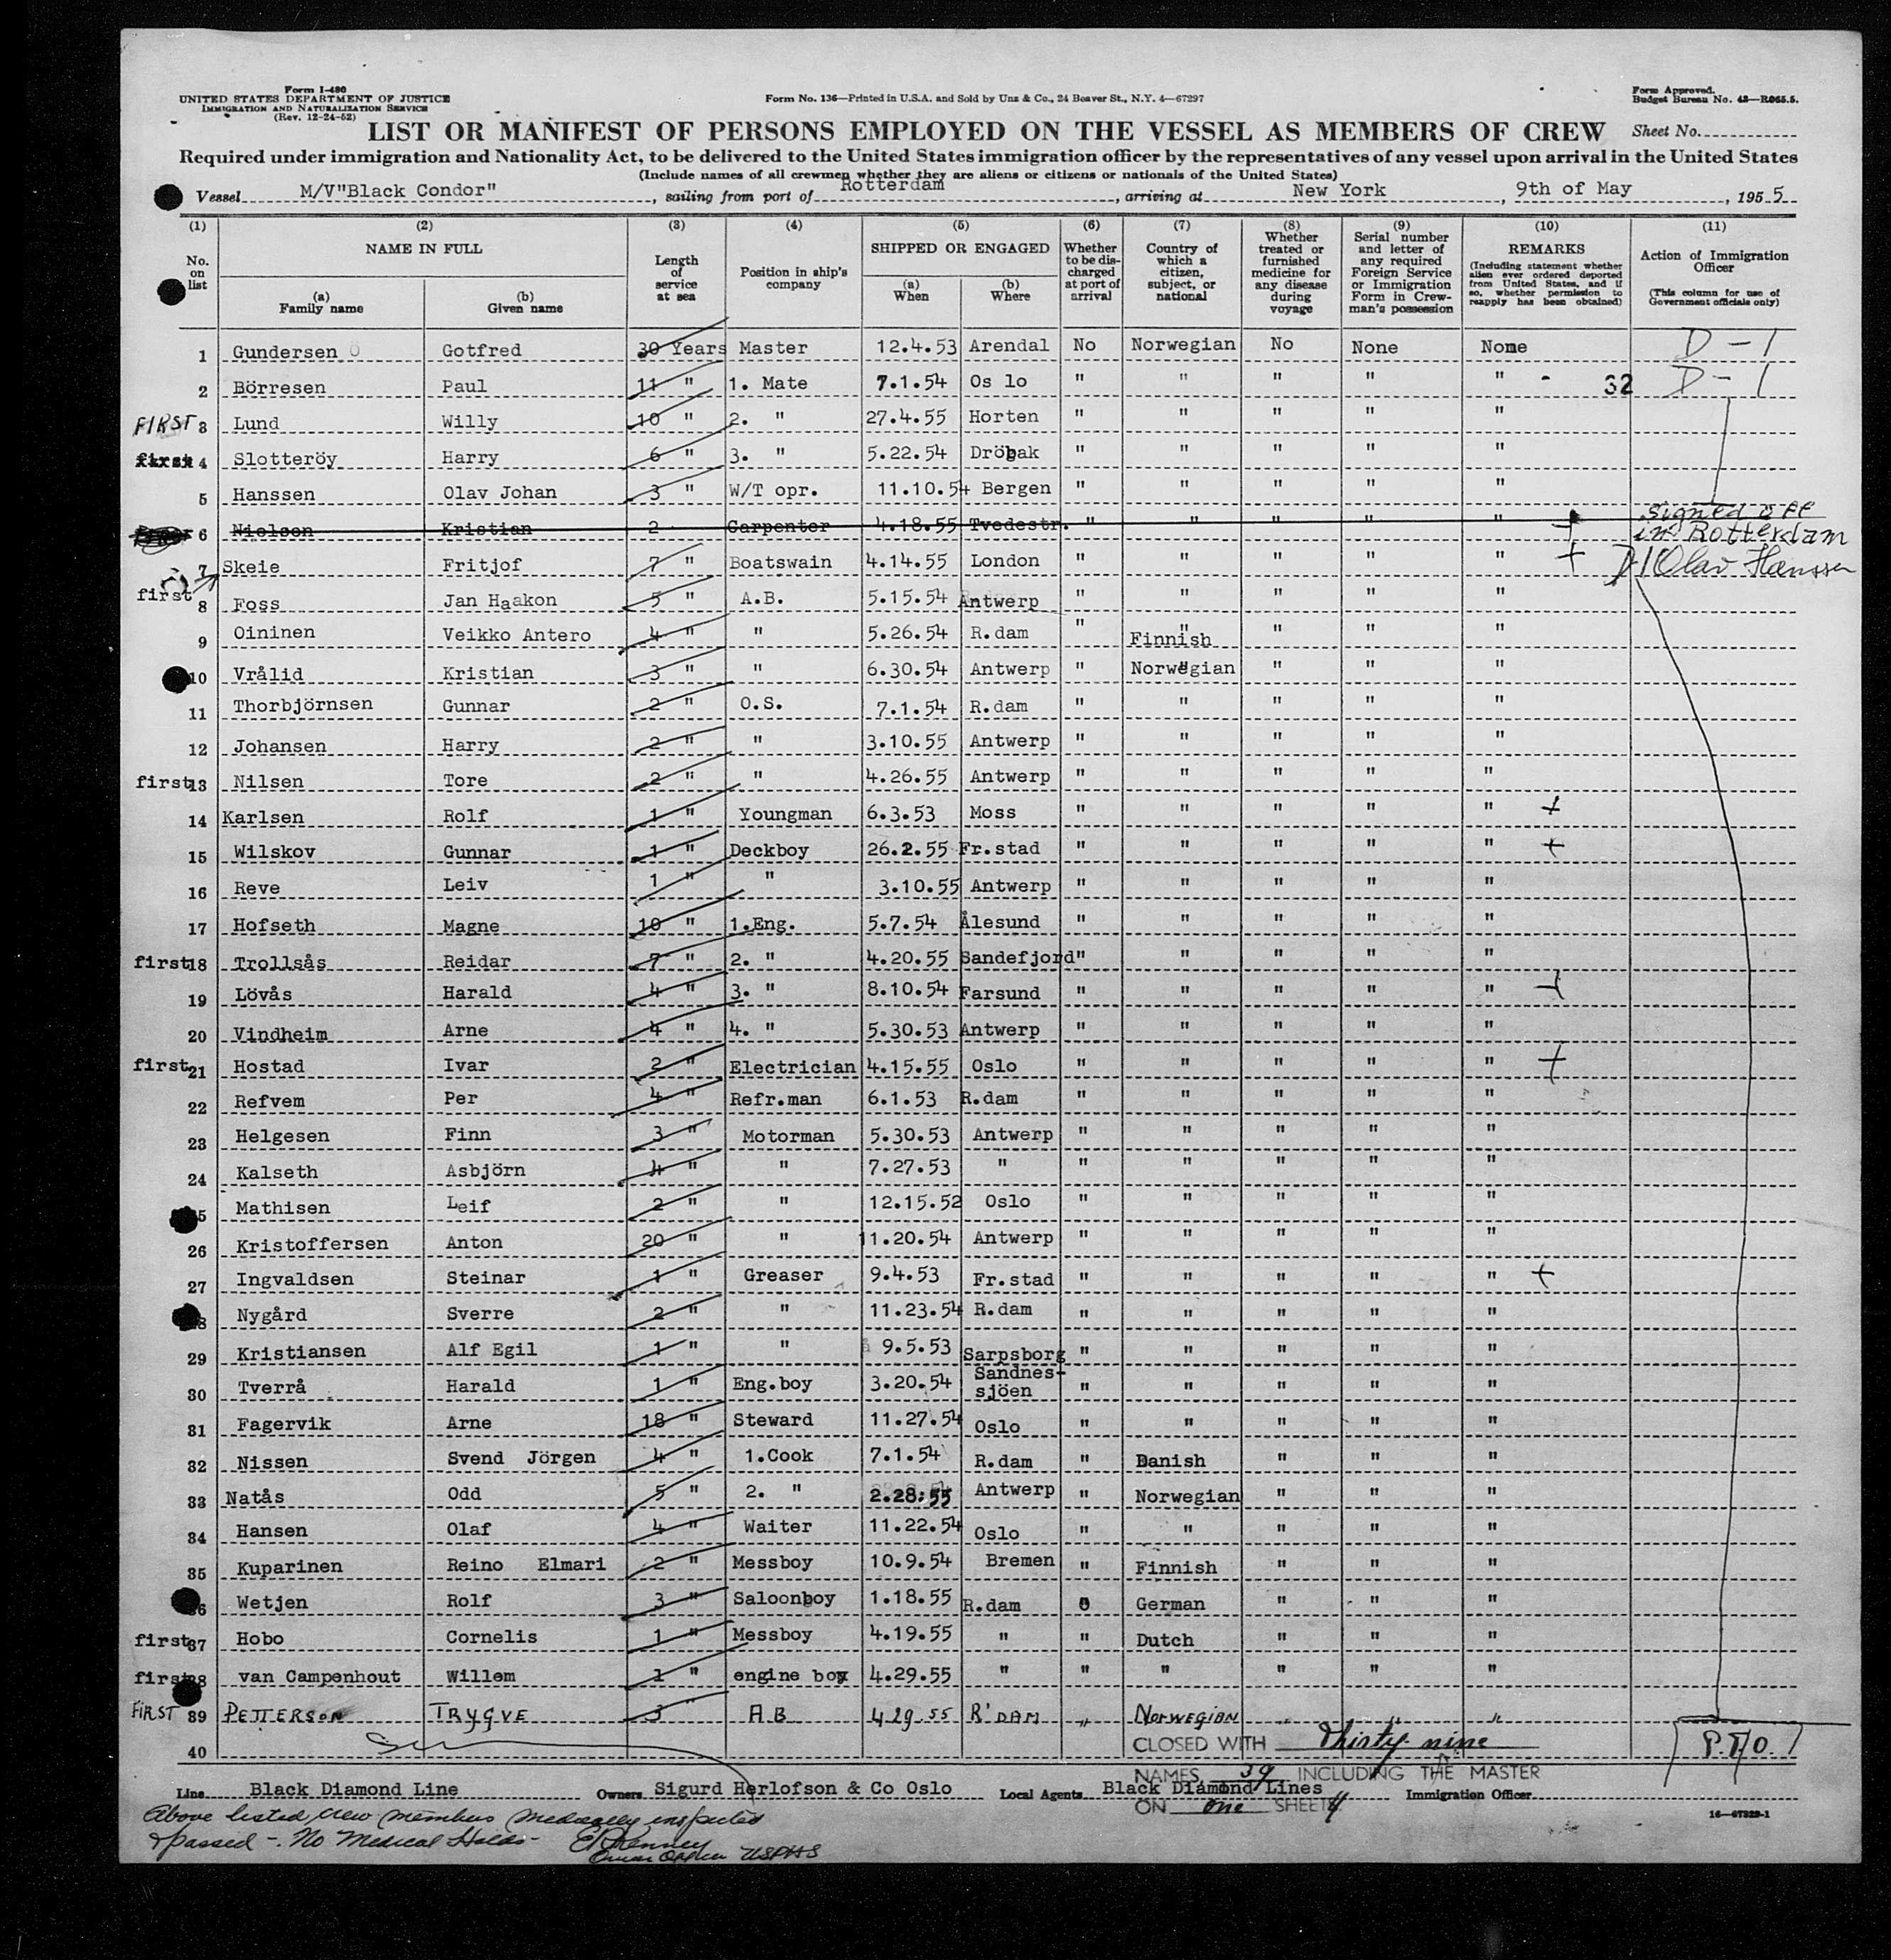 Form I-480
UNITED STATES DEPARTMENT OF JUSTICE
IMMIGRATION AND NATURALIZATION SERVICE
(Rev. 12-24-52)
Form No. 136—Printed in U.S.A. and Sold by Unz & Co., 24 Beaver St., N.Y. 4—67297
Form Approved.
Budget Bureau No. 43—R065.5.
LIST OR MANIFEST OF PERSONS EMPLOYED ON THE VESSEL AS MEMBERS OF CREW Sheet No.
Required under immigration and Nationality Act, to be delivered to the United States immigration officer by the representatives of any vessel upon arrival in the United States
(Include names of all crewmen whether they are aliens or citizens or nationals of the United States)
Vessel M/V"Black Condor", sailing from port of Rotterdam, arriving at New York, 9th of May, 1955
(1) (2) (3) (4) (5) (6) (7) (8) (9) (10) (11)
No. on list
NAME IN FULL
(a) Family name
(b) Given name
Length of service at sea
Position in ship's company
SHIPPED OR ENGAGED
(a) When
(b) Where
Whether to be discharged at port of arrival
Country of which a citizen, subject, or national
Whether treated or furnished medicine for any disease during voyage
Serial number and letter of any required Foreign Service or Immigration Form in Crewman's possession
REMARKS
(Including statement whether alien ever ordered deported from United States, and if so, whether permission to reapply has been obtained)
Action of Immigration Officer
(This column for use of Government officials only)
1 Gundersen Gotfred 30 Years Master 12.4.53 Arendal No Norwegian No None None D-1
2 Börresen Paul 11 " 1. Mate 7.1.54 Os lo " " " " " - 32 D-1
FIRST 3 Lund Willy 10 " 2. " 27.4.55 Horten " " " " "
first 4 Slotteröy Harry 6 " 3. " 5.22.54 Dröbak " " " " "
5 Hanssen Olav Johan 3 " W/T opr. 11.10.54 Bergen " " " " "
6 Nielsen Kristian 2 Carpenter 4.18.55 Tvedestr. " " " " " + signed off in Rotterdam
7 Skeie Fritjof 7 " Boatswain 4.14.55 London " " " " " + D-1 Olav Hanssen
first 8 Foss Jan Haakon 5 " A.B. 5.15.54 Antwerp " " " " "
9 Oininen Veikko Antero 4 " " 5.26.54 R.dam " Finnish " " "
10 Vrålid Kristian 3 " " 6.30.54 Antwerp " Norwegian " " "
11 Thorbjörnsen Gunnar 2 " O.S. 7.1.54 R.dam " " " " "
12 Johansen Harry 2 " " 3.10.55 Antwerp " " " " "
first 13 Nilsen Tore 2 " " 4.26.55 Antwerp " " " " "
14 Karlsen Rolf 1 " Youngman 6.3.53 Moss " " " " " +
15 Wilskov Gunnar 1 " Deckboy 26.2.55 Fr.stad " " " " " +
16 Reve Leiv 1 " " 3.10.55 Antwerp " " " " "
17 Hofseth Magne 10 " 1.Eng. 5.7.54 Ålesund " " " " "
first 18 Trollsås Reidar 7 " 2. " 4.20.55 Sandefjord " " " " "
19 Lövås Harald 4 " 3. " 8.10.54 Farsund " " " " " +
20 Vindheim Arne 4 " 4. " 5.30.53 Antwerp " " " " "
first 21 Hostad Ivar 2 " Electrician 4.15.55 Oslo " " " " " +
22 Refvem Per 4 " Refr.man 6.1.53 R.dam " " " " "
23 Helgesen Finn 3 " Motorman 5.30.53 Antwerp " " " " "
24 Kalseth Asbjörn 4 " " 7.27.53 " " " " " "
5 Mathisen Leif 2 " " 12.15.52 Oslo " " " " "
26 Kristoffersen Anton 20 " " 11.20.54 Antwerp " " " " "
27 Ingvaldsen Steinar 1 " Greaser 9.4.53 Fr.stad " " " " " +
8 Nygård Sverre 2 " " 11.23.54 R.dam " " " " "
29 Kristiansen Alf Egil 1 " " 9.5.53 Sarpsborg " " " " "
30 Tverrå Harald 1 " Eng.boy 3.20.54 Sandnes-sjöen " " " " "
31 Fagervik Arne 18 " Steward 11.27.54 Oslo " " " " "
32 Nissen Svend Jörgen 4 " 1.Cook 7.1.54 R.dam " Danish " " "
33 Natås Odd 5 " 2. " 2.28.55 Antwerp " Norwegian " " "
34 Hansen Olaf 4 " Waiter 11.22.54 Oslo " " " " "
35 Kuparinen Reino Elmari 2 " Messboy 10.9.54 Bremen " Finnish " " "
6 Wetjen Rolf 3 " Saloonboy 1.18.55 R.dam " German " " "
first 37 Hobo Cornelis 1 " Messboy 4.19.55 " " Dutch " " "
first 8 van Campenhout Willem 1 " engine boy 4.29.55 " " " " " "
FIRST 39 PETTERSON TRYGVE 3 " A B 4 29.55 R'DAM " NORWEGIAN " " "
40
CLOSED WITH Thirty nine
NAMES 39 INCLUDING THE MASTER
ON one SHEET
P.T.O.
Line Black Diamond Line Owners Sigurd Herlofson & Co Oslo Local Agents Black Diamond Lines Immigration Officer
16—67329-1
Above listed crew members medically inspected
& passed - No Medical Holds -
USPHS